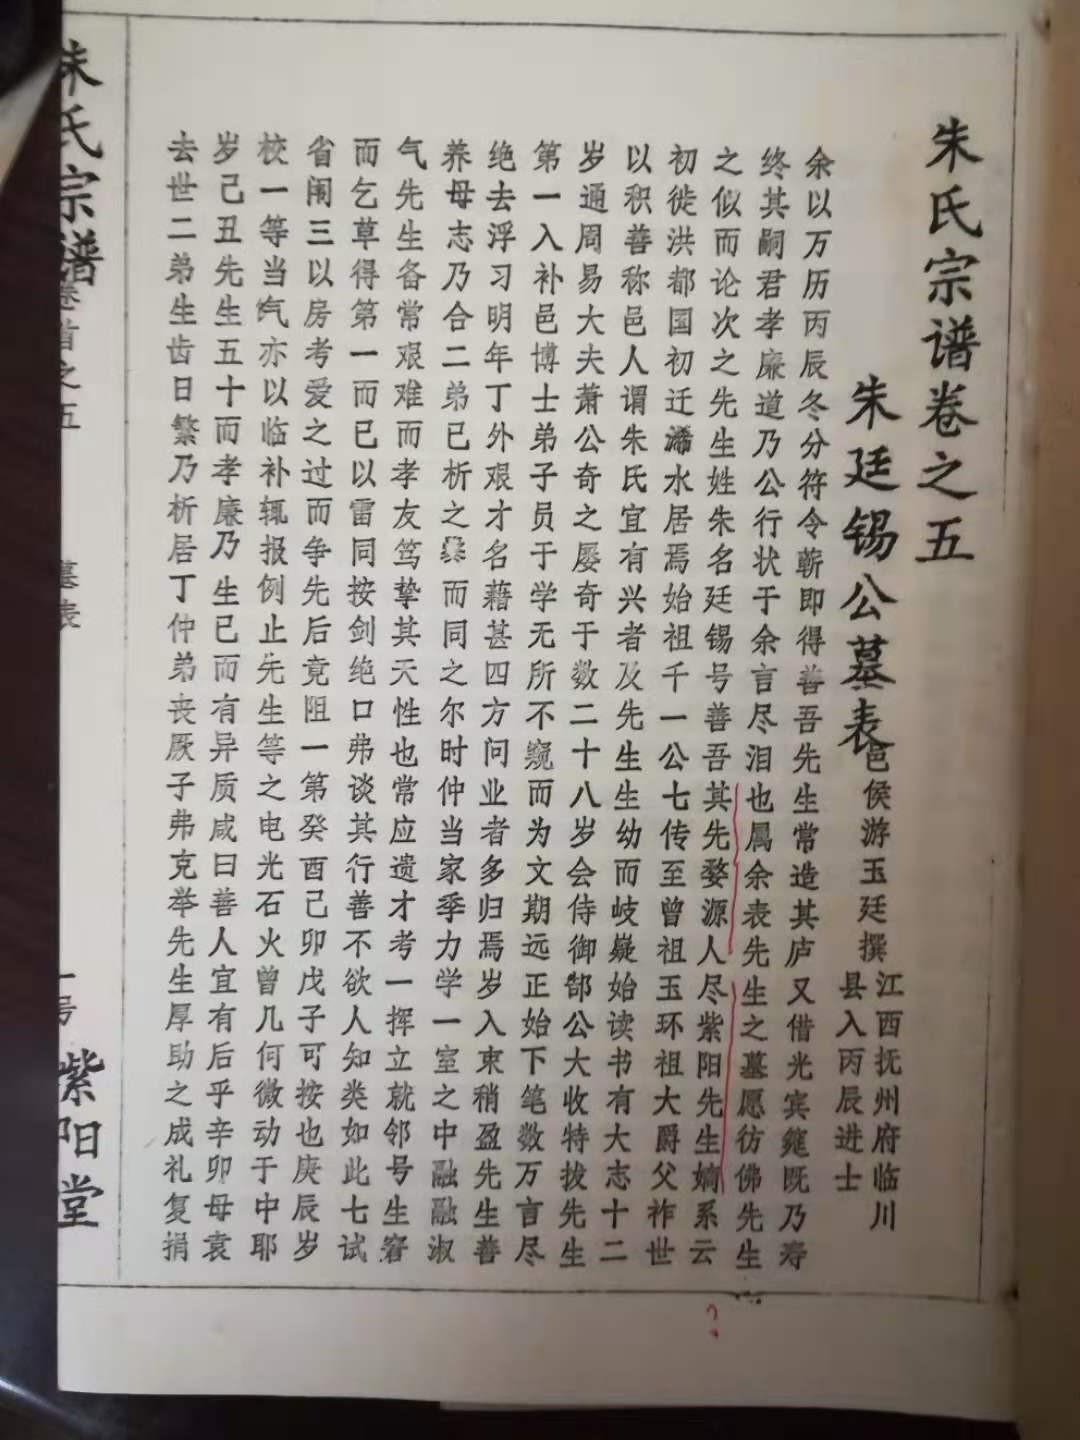 朱氏宗谱卷之五
朱廷锡公墓表
邑侯游玉廷撰
江西抚州府临川
县入丙辰进士
余以万历丙辰冬分符令蕲即得善吾先生常造其庐又借光宾筵既乃寿
终其嗣君孝廉道乃公行状于余言尽泪也属余表先生之墓愿彷佛先生
之似而论次之先生姓朱名廷锡号善吾其先婺源人尽紫阳先生嫡系云
初徙洪都国初迁浠水居焉始祖千一公七传至曾祖玉环祖大爵父祚世
以积善称邑人谓朱氏宜有兴者及先生生幼而岐嶷始读书有大志十二
岁通周易大夫萧公奇之屡奇于数二十八岁会侍御郜公大收特拔先生
第一入补邑博士弟子员于学无所不窥而为文期远正始下笔数万言尽
绝去浮习明年丁外艰才名藉甚四方问业者多归焉岁入束稍盈先生善
养母志乃合二弟已析之而同之尔时仲当家季力学一室之中融融淑
气先生备常艰难而孝友笃挚其天性也常应遗才考一挥立就邻号生窘
而乞草得第一而已以雷同按剑绝口弗谈其行善不欲人知类如此七试
省闱三以房考爱之过而争先后竟阻一第癸酉己卯戊子可按也庚辰岁
校一等当气亦以临补辄报例止先生等之电光石火曾几何微动于中耶
岁己丑先生五十而孝廉乃生已而有异质咸曰善人宜有后乎辛卯母袁
去世二弟生齿日繁乃析居丁仲弟丧厥子弗克举先生厚助之成礼复捐
朱氏宗谱
卷首之五
墓表
一号
紫阳堂